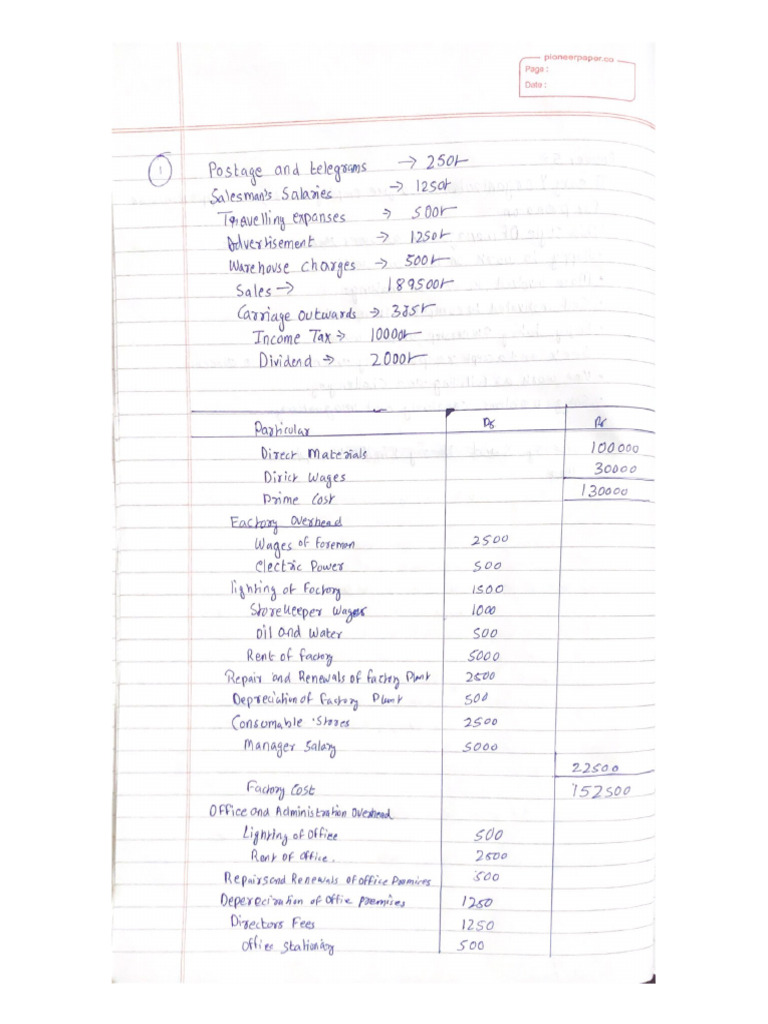 pioneerpaper.co
Page :
Date :
1
Postage and telegrams → 250/-
Salesman's Salaries → 1250/-
Travelling expanses → 500/-
Advertisement → 1250/-
Warehouse charges → 500/-
Sales → 189500/-
Carriage outwards → 375/-
Income Tax → 10000/-
Dividend → 2000/-
Particular Rs Rs
Direct Materials 100000
Dirict Wages 30000
Prime Cost 130000
Factory Overhead
Wages of Foreman 2500
electric Power 500
lighting of Factory 1500
Storekeeper Wages 1000
Oil and Water 500
Rent of factory 5000
Repair and Renewals of factory Plant 2500
Depreciation of Factory Plant 500
Consumable Stores 2500
Manager Salary 5000
22500
Factory Cost 152500
Office and Administration Overhead
Lighting of Office 500
Rent of office. 2500
Repairs and Renewals of office Premires 500
Depereciration of Offic premires 1250
Directors Fees 1250
Office Stationary 500